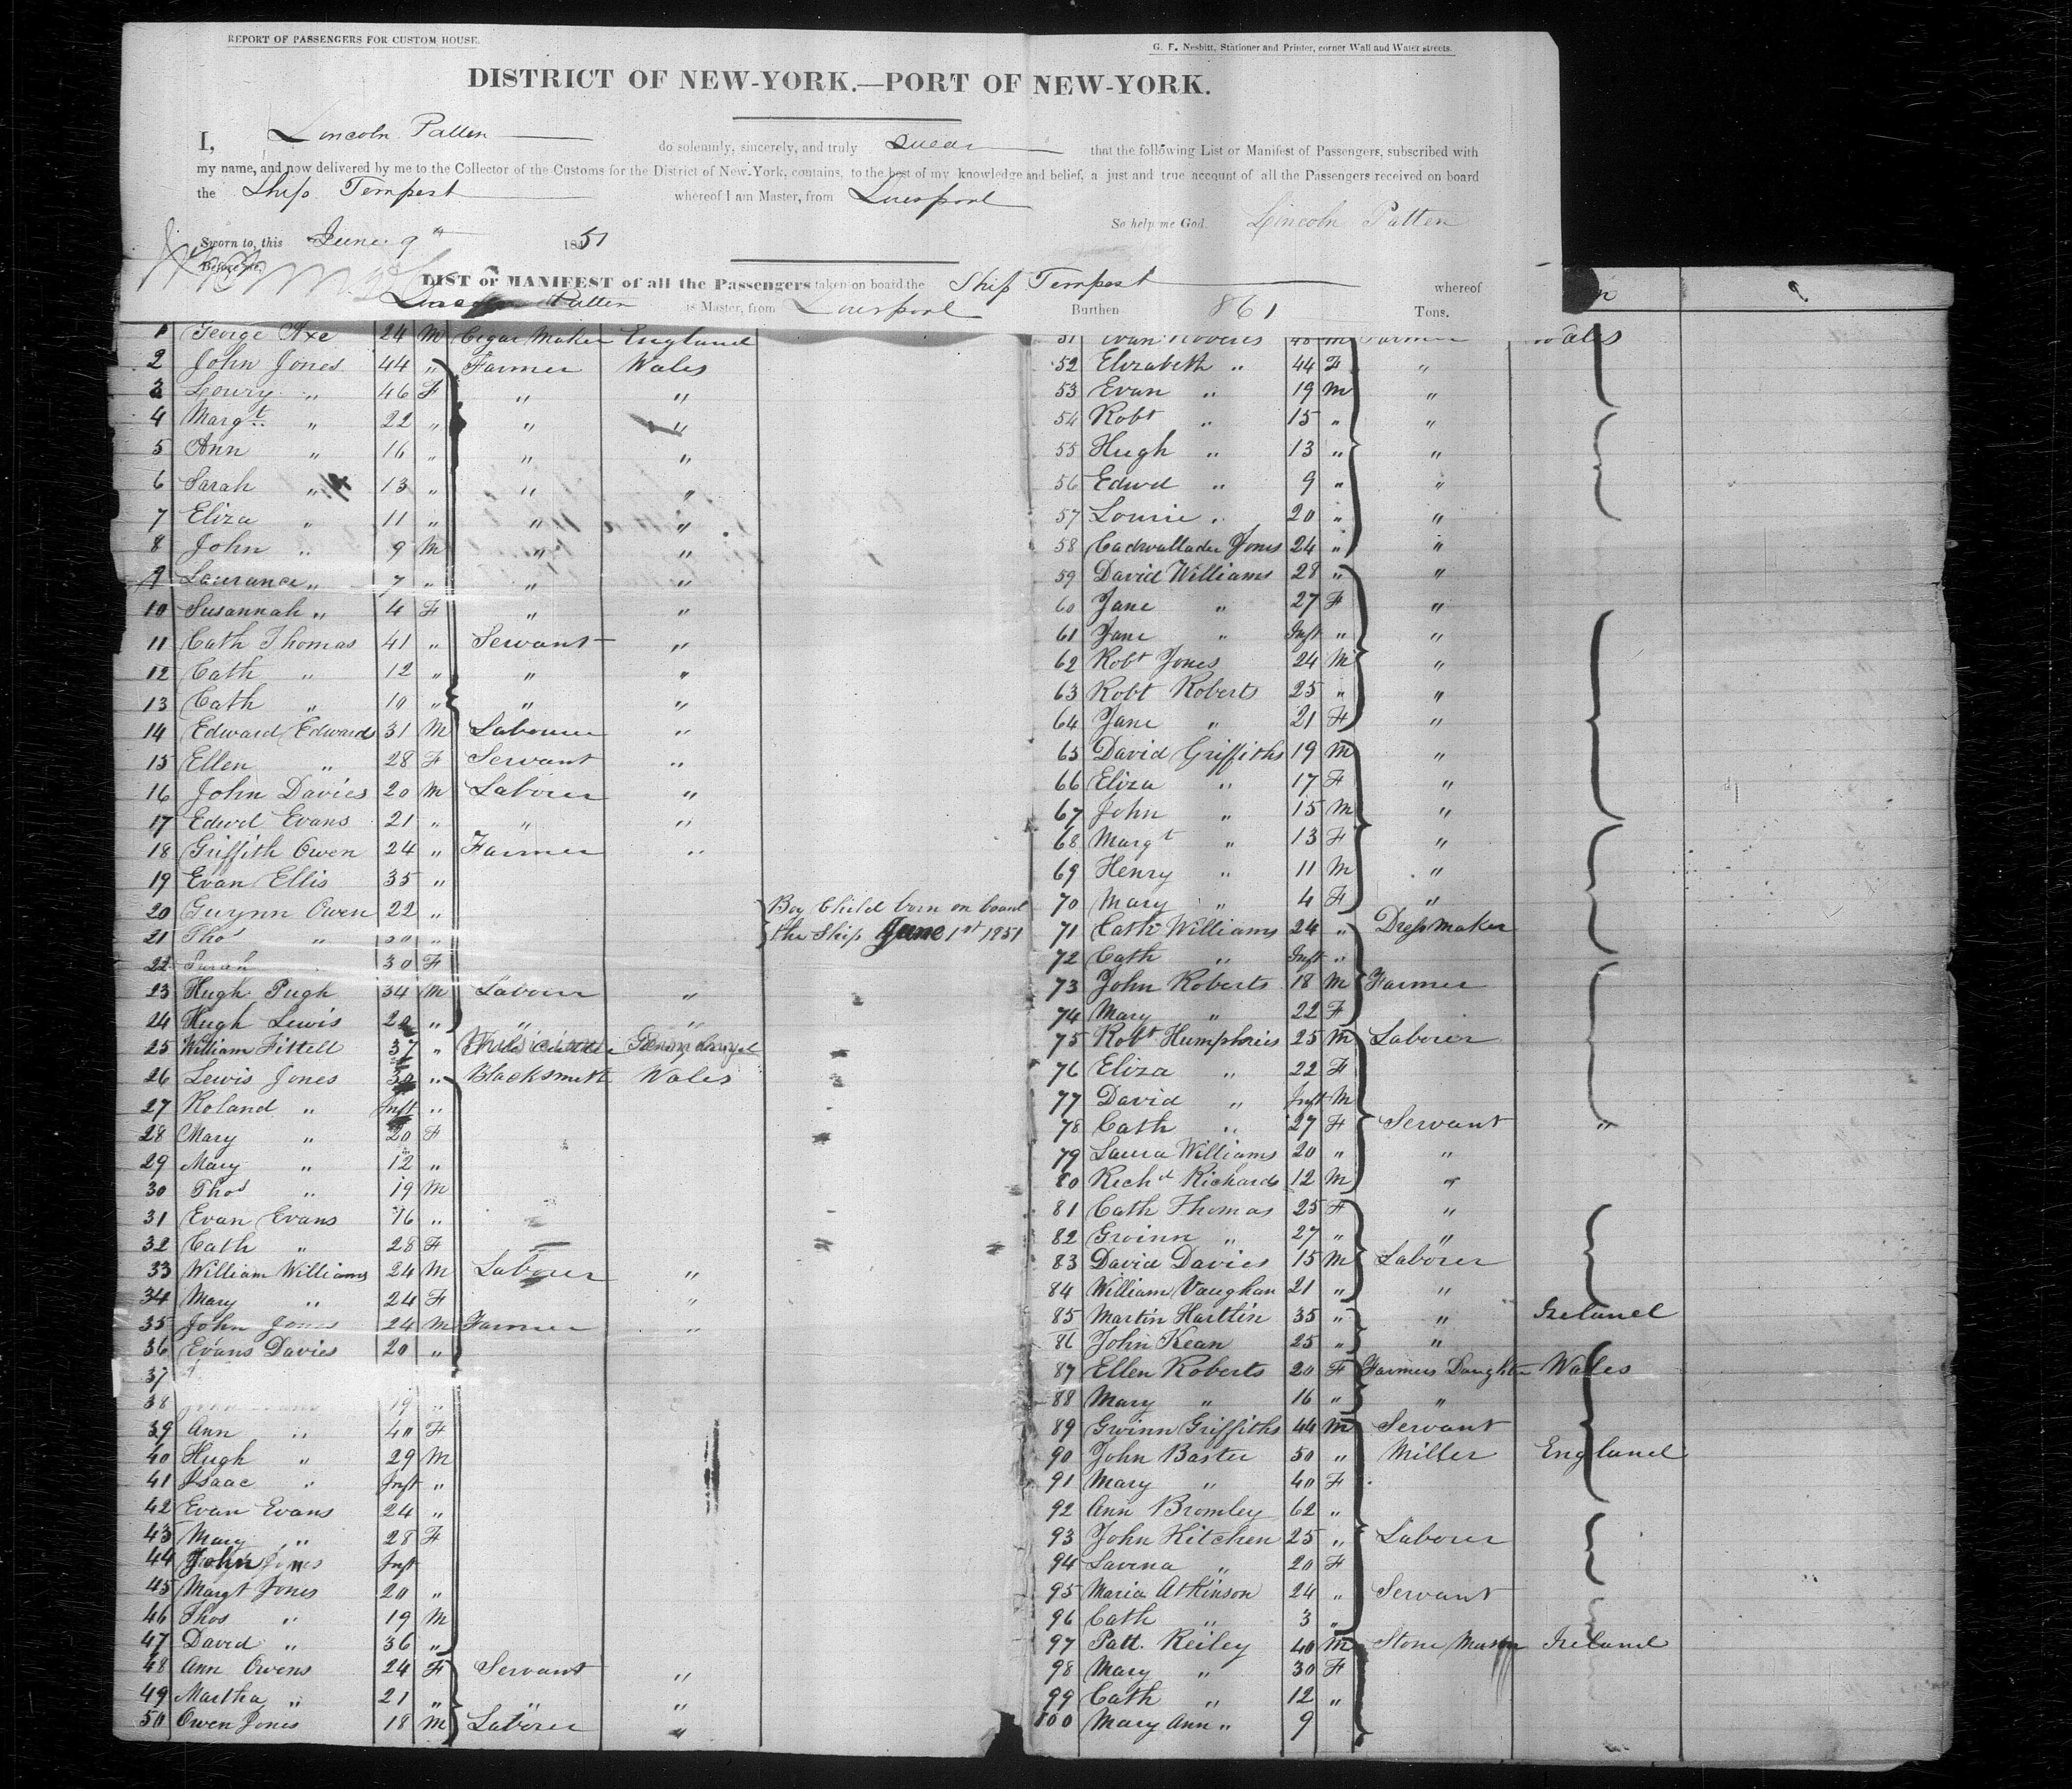 REPORT OF PASSENGERS FOR CUSTOM HOUSE.
G. F. Nesbitt, Stationer and Printer, corner Wall and Water streets.
DISTRICT OF NEW-YORK.—PORT OF NEW-YORK.
I, Lincoln Patten do solemnly, sincerely, and truly Swear that the following List or Manifest of Passengers, subscribed with
my name, and now delivered by me to the Collector of the Customs for the District of New-York, contains, to the best of my knowledge and belief, a just and true account of all the Passengers received on board
the Ship Tempest whereof I am Master, from Liverpool
So help me God. Lincoln Patten
Sworn to, this June 9th 1851
Before me,
LIST or MANIFEST of all the Passengers taken on board the Ship Tempest whereof
Lincoln Patten is Master, from Liverpool Burthen 861 Tons.
1 George Axe 24 M Cigar Maker England
2 John Jones 44 " Farmer Wales
3 Lowry " 46 F " "
4 Margt " 22 " " "
5 Ann " 16 " " "
6 Sarah " 13 " " "
7 Eliza " 11 " " "
8 John " 9 M " "
9 Laurance " 7 " " "
10 Susannah " 4 F " "
11 Cath Thomas 41 " Servant "
12 Cath " 12 " " "
13 Cath " 10 " " "
14 Edward Edwards 31 M Labourer "
15 Ellen " 28 F Servant "
16 John Davies 20 M Laborer "
17 Edwd Evans 21 " " "
18 Griffith Owen 24 " Farmer "
19 Evan Ellis 35 "
20 Gwynn Owen 22 "
21 Thos " 30 "
Boy Child born on board
the Ship June 1st 1851
22 Sarah 30 F
23 Hugh Pugh 34 M Labourer "
24 Hugh Lewis 20 " " "
25 William Fittell 37 "
26 Lewis Jones 30 " Blacksmith Wales
27 Roland " Inft "
28 Mary " 20 F
29 Mary " 12 "
30 Thos " 19 M
31 Evan Evans 16 "
32 Cath " 28 F
33 William Williams 24 M Laborer "
34 Mary " 24 F "
35 John Jones 24 M Farmer "
36 Evans Davies 20 "
37
38 19 "
39 Ann " 40 F
40 Hugh " 29 M
41 Isaac " Inft "
42 Evan Evans 24 "
43 Mary " 28 F
44 John Jones Inft
45 Margt Jones 20 "
46 Thos " 19 M
47 David " 36 "
48 Ann Owens 24 F Servant "
49 Martha " 21 " " "
50 Owen Jones 18 M Laborer "
51 Evan Roberts 48 M Farmer Wales
52 Elizabeth " 44 F "
53 Evan " 19 M "
54 Robt " 15 " "
55 Hugh " 13 " "
56 Edwd " 9 " "
57 Lourie " 20 " "
58 Cadwallader Jones 24 " "
59 David Williams 28 " "
60 Jane " 27 F "
61 Jane " Inft " "
62 Robt Jones 24 M "
63 Robt Roberts 25 " "
64 Jane " 21 F "
65 David Griffiths 19 M "
66 Eliza " 17 F "
67 John " 15 M "
68 Margt " 13 F "
69 Henry " 11 M "
70 Mary " 4 F "
71 Cath Williams 24 " Dress Maker
72 Cath " Inft "
73 John Roberts 18 M Farmer
74 Mary " 22 F
75 Robt Humphries 25 M Laborer
76 Eliza " 22 F
77 David " Inft M
78 Cath " 27 F Servant "
79 Laura Williams 20 " "
80 Richd Richards 12 M "
81 Cath Thomas 25 F "
82 Gwinn " 27 " "
83 David Davies 15 M Laborer
84 William Vaughan 21 " "
85 Martin Harttin 35 " " Ireland
86 John Kean 25 " "
87 Ellen Roberts 20 F Farmers Daughter Wales
88 Mary " 16 " "
89 Gwinn Griffiths 44 M Servant
90 John Baster 50 " Miller England
91 Mary " 40 F
92 Ann Bromley 62 "
93 John Kitchen 25 " Laborer
94 Lavina " 20 F
95 Maria Atkinson 24 " Servant
96 Cath " 3 "
97 Patt. Reiley 40 M Stone Mason Ireland
98 Mary " 30 F
99 Cath " 12 "
100 Mary Ann " 9